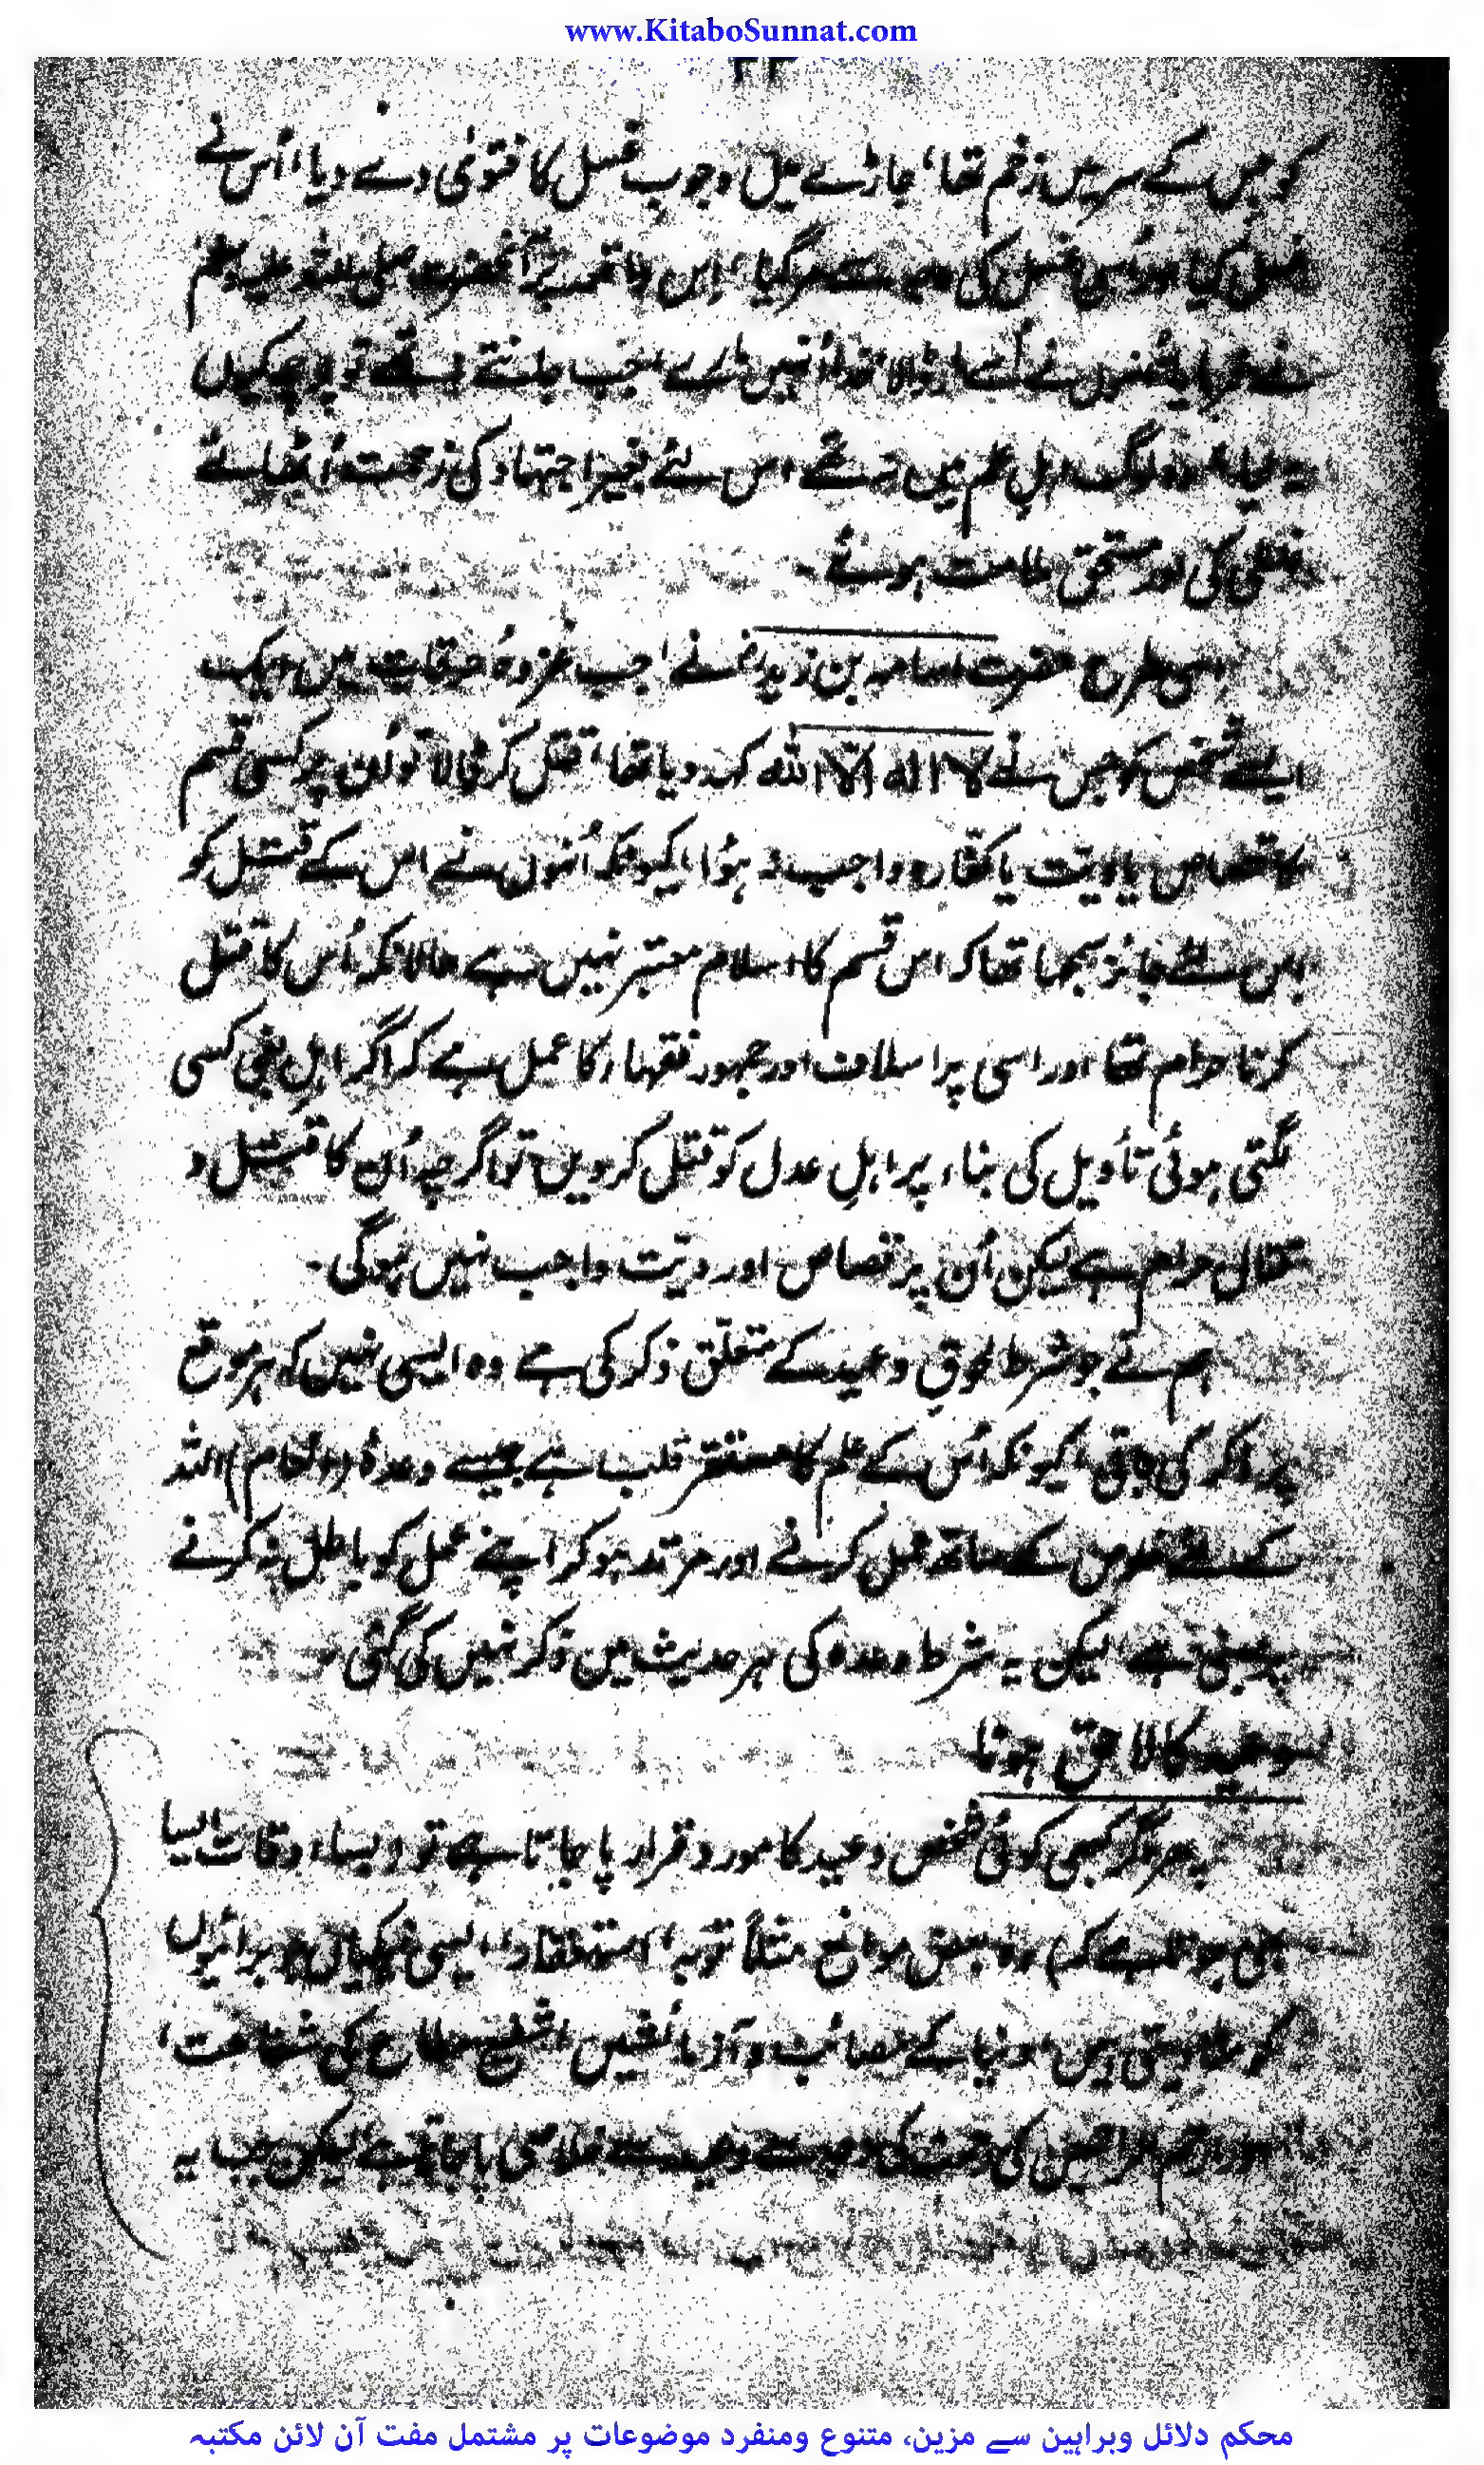 www.KitaboSunnat.com
کو جس کے سر میں زخم تھا، جاڑے میں وجوب غسل کا فتویٰ دے دیا، اُس نے
غسل کیا اور اُسی غسل کی وجہ سے مر گیا، اِس واقعہ پر آنحضرت صلی اللہ علیہ وسلم
نے فرمایا اُنھوں نے اُسے مار ڈالا خدا اُنہیں مارے، جب جانتے نہ تھے تو پوچھ کیوں
نہ لیا، وہ لوگ اہلِ علم میں نہ تھے اس لئے بغیر اجتہاد کی زحمت اُٹھائے
غلطی کی اور مستحق ملامت ہوئے۔
اسی طرح حضرت اسامہ بن زیدؓ نے، جب غزوۂ حرقات میں ایک
ایسے شخص کو جس نے لا الٰہ الّا اللہ کہہ دیا تھا، قتل کر ڈالا تو اُن پر کسی قسم
کا قصاص یا دیّت یا کفّارہ واجب نہ ہؤا، کیونکہ اُنہوں نے اس کے قتل کو
اس لئے جائز سمجھا تھا کہ اس قسم کا اسلام معتبر نہیں ہے حالانکہ اُس کا قتل
کرنا حرام تھا اور اسی پر اسلاف اور جمہور فقہاء کا عمل ہے کہ اگر اہلِ بغی کسی
لگتی ہوئی تأویل کی بناء پر اہلِ عدل کو قتل کر دیں تو اگرچہ اُن کا قتل و
قتال حرام ہے لیکن اُن پر قصاص اور دیّت واجب نہیں ہوگی۔
ہم نے جو شرط لحوقِ وعید کے متعلّق ذکر کی ہے وہ ایسی نہیں کہ ہر موقع
پر ذکر کی جاتی، کیونکہ اُس کے علم کا مستقر قلب ہے جیسے وعدۂ (انعام) اللہ
کے لئے خلوص کے ساتھ عمل کرنے اور مرتد ہو کر اپنے عمل کو باطل نہ کرنے
پر مبنی ہے، لیکن یہ شرط وعدہ کی ہر حدیث میں ذکر نہیں کی گئی۔
وعید کا لاحق ہونا
پھر اگر کبھی کوئی شخص وعید کا مورد قرار پا جاتا ہے تو (بسا اوقات ایسا
بھی ہوتا ہے کہ) وہ بعض موانع مثلاً توبہ، استغفار، ایسی نیکیاں جو برائیوں
کو مٹا دیتی ہیں، دنیا کے مصائب و آزمائشیں، شفیع مطاع کی شفاعت،
اور ارحم الراحمین کی رحمت کی وجہ سے وعید سے خلاصی پا جاتا ہے لیکن جب یہ
محکم دلائل وبراہین سے مزین، متنوع ومنفرد موضوعات پر مشتمل مفت آن لائن مکتبہ